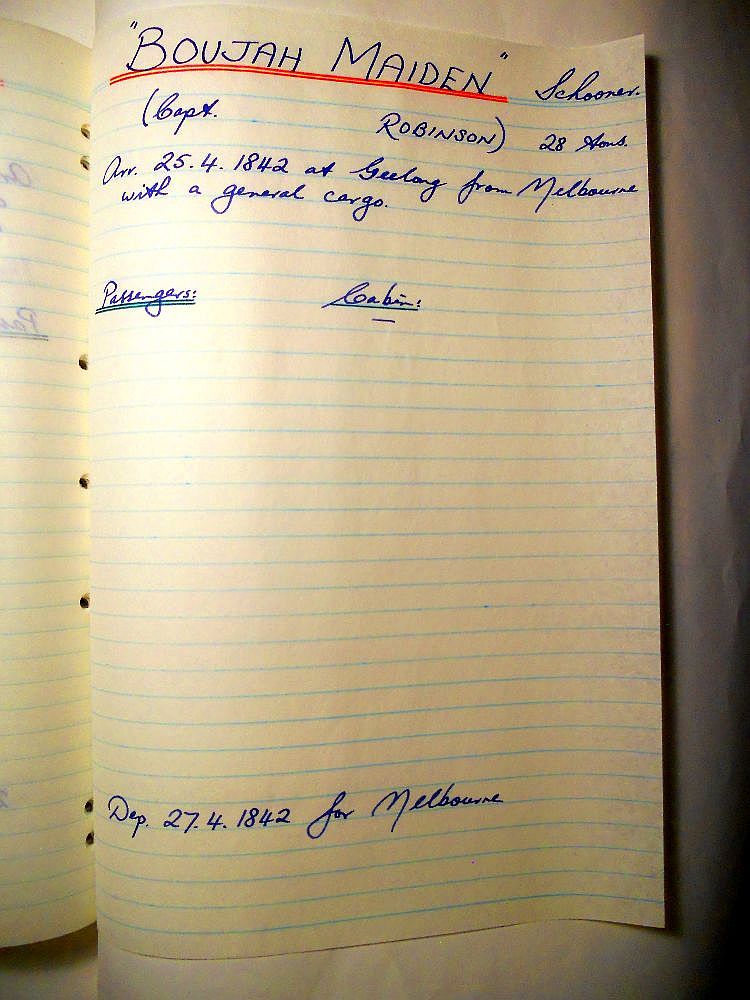 "BOUJAH MAIDEN" Schooner.
(Capt. ROBINSON) 28 tons.
Arr. 25.4.1842 at Geelong from Melbourne
with a general cargo.
Passengers: Cabin:
—
Dep. 27.4.1842 for Melbourne